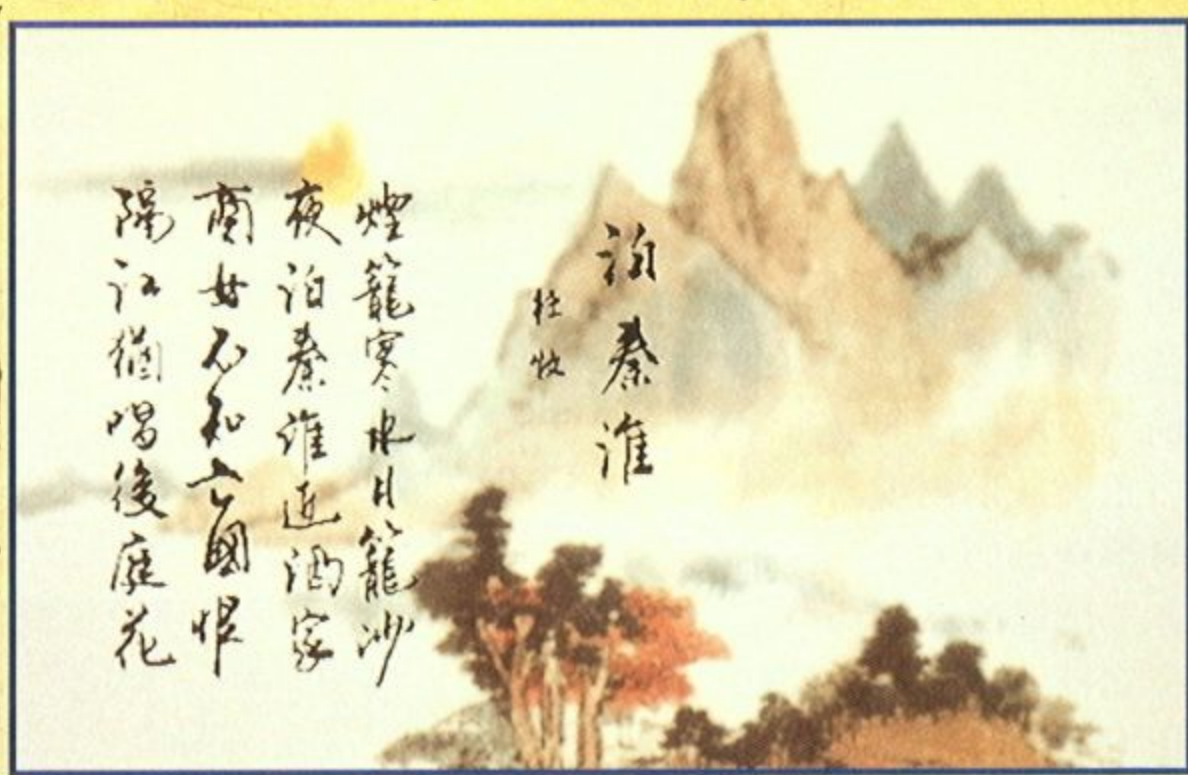 泊秦淮
杜牧
煙籠寒水月籠沙
夜泊秦淮近酒家
商女不知亡國恨
隔江猶唱後庭花